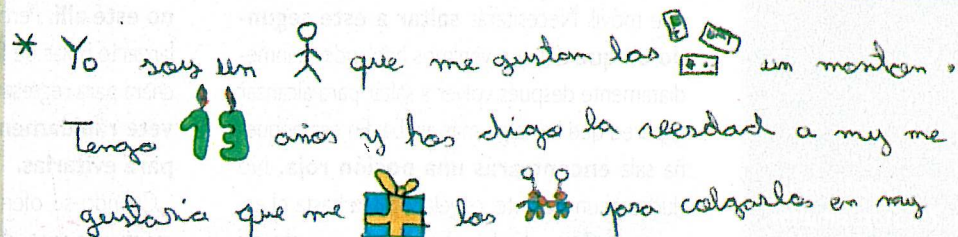 * Yo soy un que me gustan las un monton.
Tengo 13 años y hos digo la verdad a my me
gustaria que me los para colgarlos en my